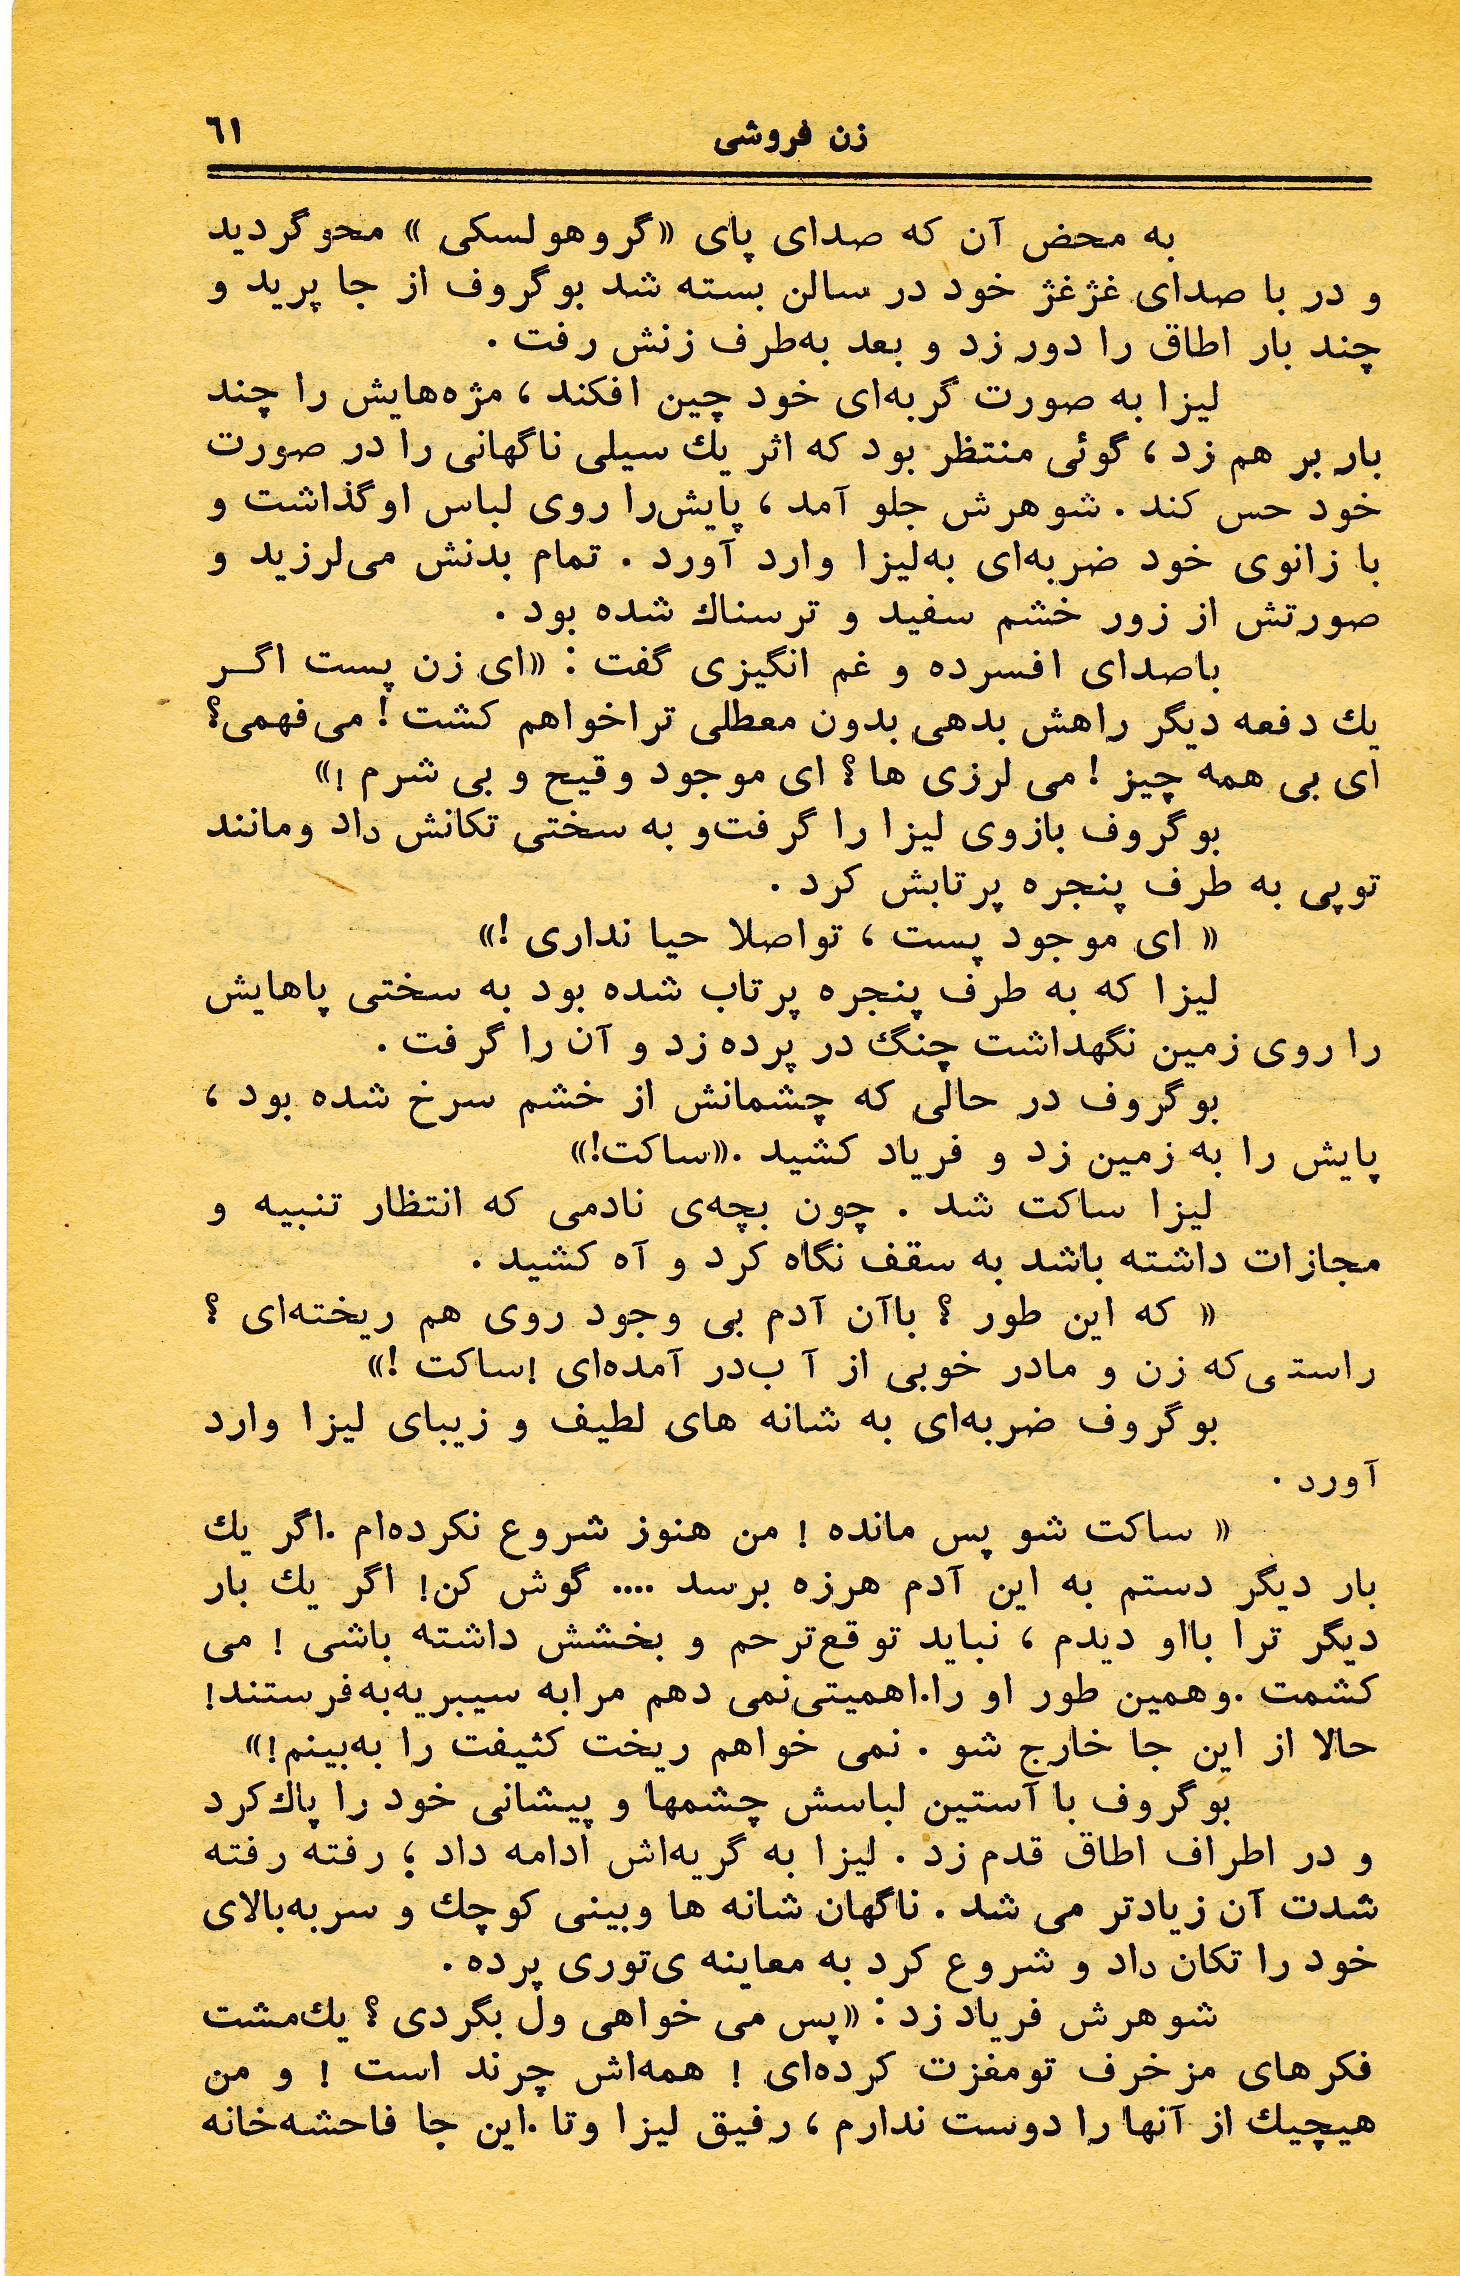 زن فروشی ۶۱
به محض آن که صدای پای «گروهولسکی» محوگردید
و در با صدای غژغژ خود در سالن بسته شد بوگروف از جا پرید و
چند بار اطاق را دور زد و بعد به‌طرف زنش رفت .
لیزا به صورت گربه‌ای خود چین افکند ، مژه‌هایش را چند
بار بر هم زد ، گوئی منتظر بود که اثر یك سیلی ناگهانی را در صورت
خود حس کند . شوهرش جلو آمد ، پایش‌را روی لباس اوگذاشت و
با زانوی خود ضربه‌ای به‌لیزا وارد آورد . تمام بدنش می‌لرزید و
صورتش از زور خشم سفید و ترسناك شده بود .
باصدای افسرده و غم انگیزی گفت : «ای زن پست اگـر
یك دفعه دیگر راهش بدهی بدون معطلی تراخواهم کشت ! می‌فهمی؟
ای بی همه چیز ! می لرزی ها ؟ ای موجود وقیح و بی شرم !»
بوگروف بازوی لیزا را گرفت‌و به سختی تکانش داد ومانند
توپی به طرف پنجره پرتابش کرد .
« ای موجود پست ، تواصلا حیا نداری !»
لیزا که به طرف پنجره پرتاب شده بود به سختی پاهایش
را روی زمین نگهداشت چنگ در پرده زد و آن را گرفت .
بوگروف در حالی که چشمانش از خشم سرخ شده بود ،
پایش را به زمین زد و فریاد کشید .«ساکت!»
لیزا ساکت شد . چون بچه‌ی نادمی که انتظار تنبیه و
مجازات داشته باشد به سقف نگاه کرد و آه کشید .
« که این طور ؟ باآن آدم بی وجود روی هم ریخته‌ای ؟
راستی‌که زن و مادر خوبی از آ ب‌در آمده‌ای !ساکت !»
بوگروف ضربه‌ای به شانه های لطیف و زیبای لیزا وارد
آورد .
« ساکت شو پس مانده ! من هنوز شروع نکرده‌ام .اگر یك
بار دیگر دستم به این آدم هرزه برسد .... گوش کن! اگر یك بار
دیگر ترا بااو دیدم ، نباید توقع‌ترحم و بخشش داشته باشی ! می
کشمت .وهمین طور او را.اهمیتی‌نمی دهم مرابه سیبریه‌به‌فرستند!
حالا از این جا خارج شو . نمی خواهم ریخت کثیفت را به‌بینم!»
بوگروف با آستین لباسش چشمها و پیشانی خود را پاك‌کرد
و در اطراف اطاق قدم زد . لیزا به گریه‌اش ادامه داد ؛ رفته رفته
شدت آن زیادتر می شد . ناگهان شانه ها وبینی کوچك و سربه‌بالای
خود را تکان داد و شروع کرد به معاینه ی‌توری پرده .
شوهرش فریاد زد : «پس می خواهی ول بگردی ؟ یك‌مشت
فکرهای مزخرف تومفزت کرده‌ای ! همه‌اش چرند است ! و من
هیچیك از آنها را دوست ندارم ، رفیق لیزا وتا .این جا فاحشه‌خانه